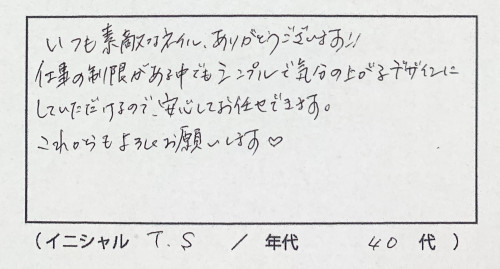 いつも素敵なネイル、ありがとうございます!!
仕事の制限がある中でもシンプルで気分の上がるデザインに
していただけるので、安心してお任せできます。
これからもよろしくお願いします♡
(イニシャル T.S / 年代 40 代 )